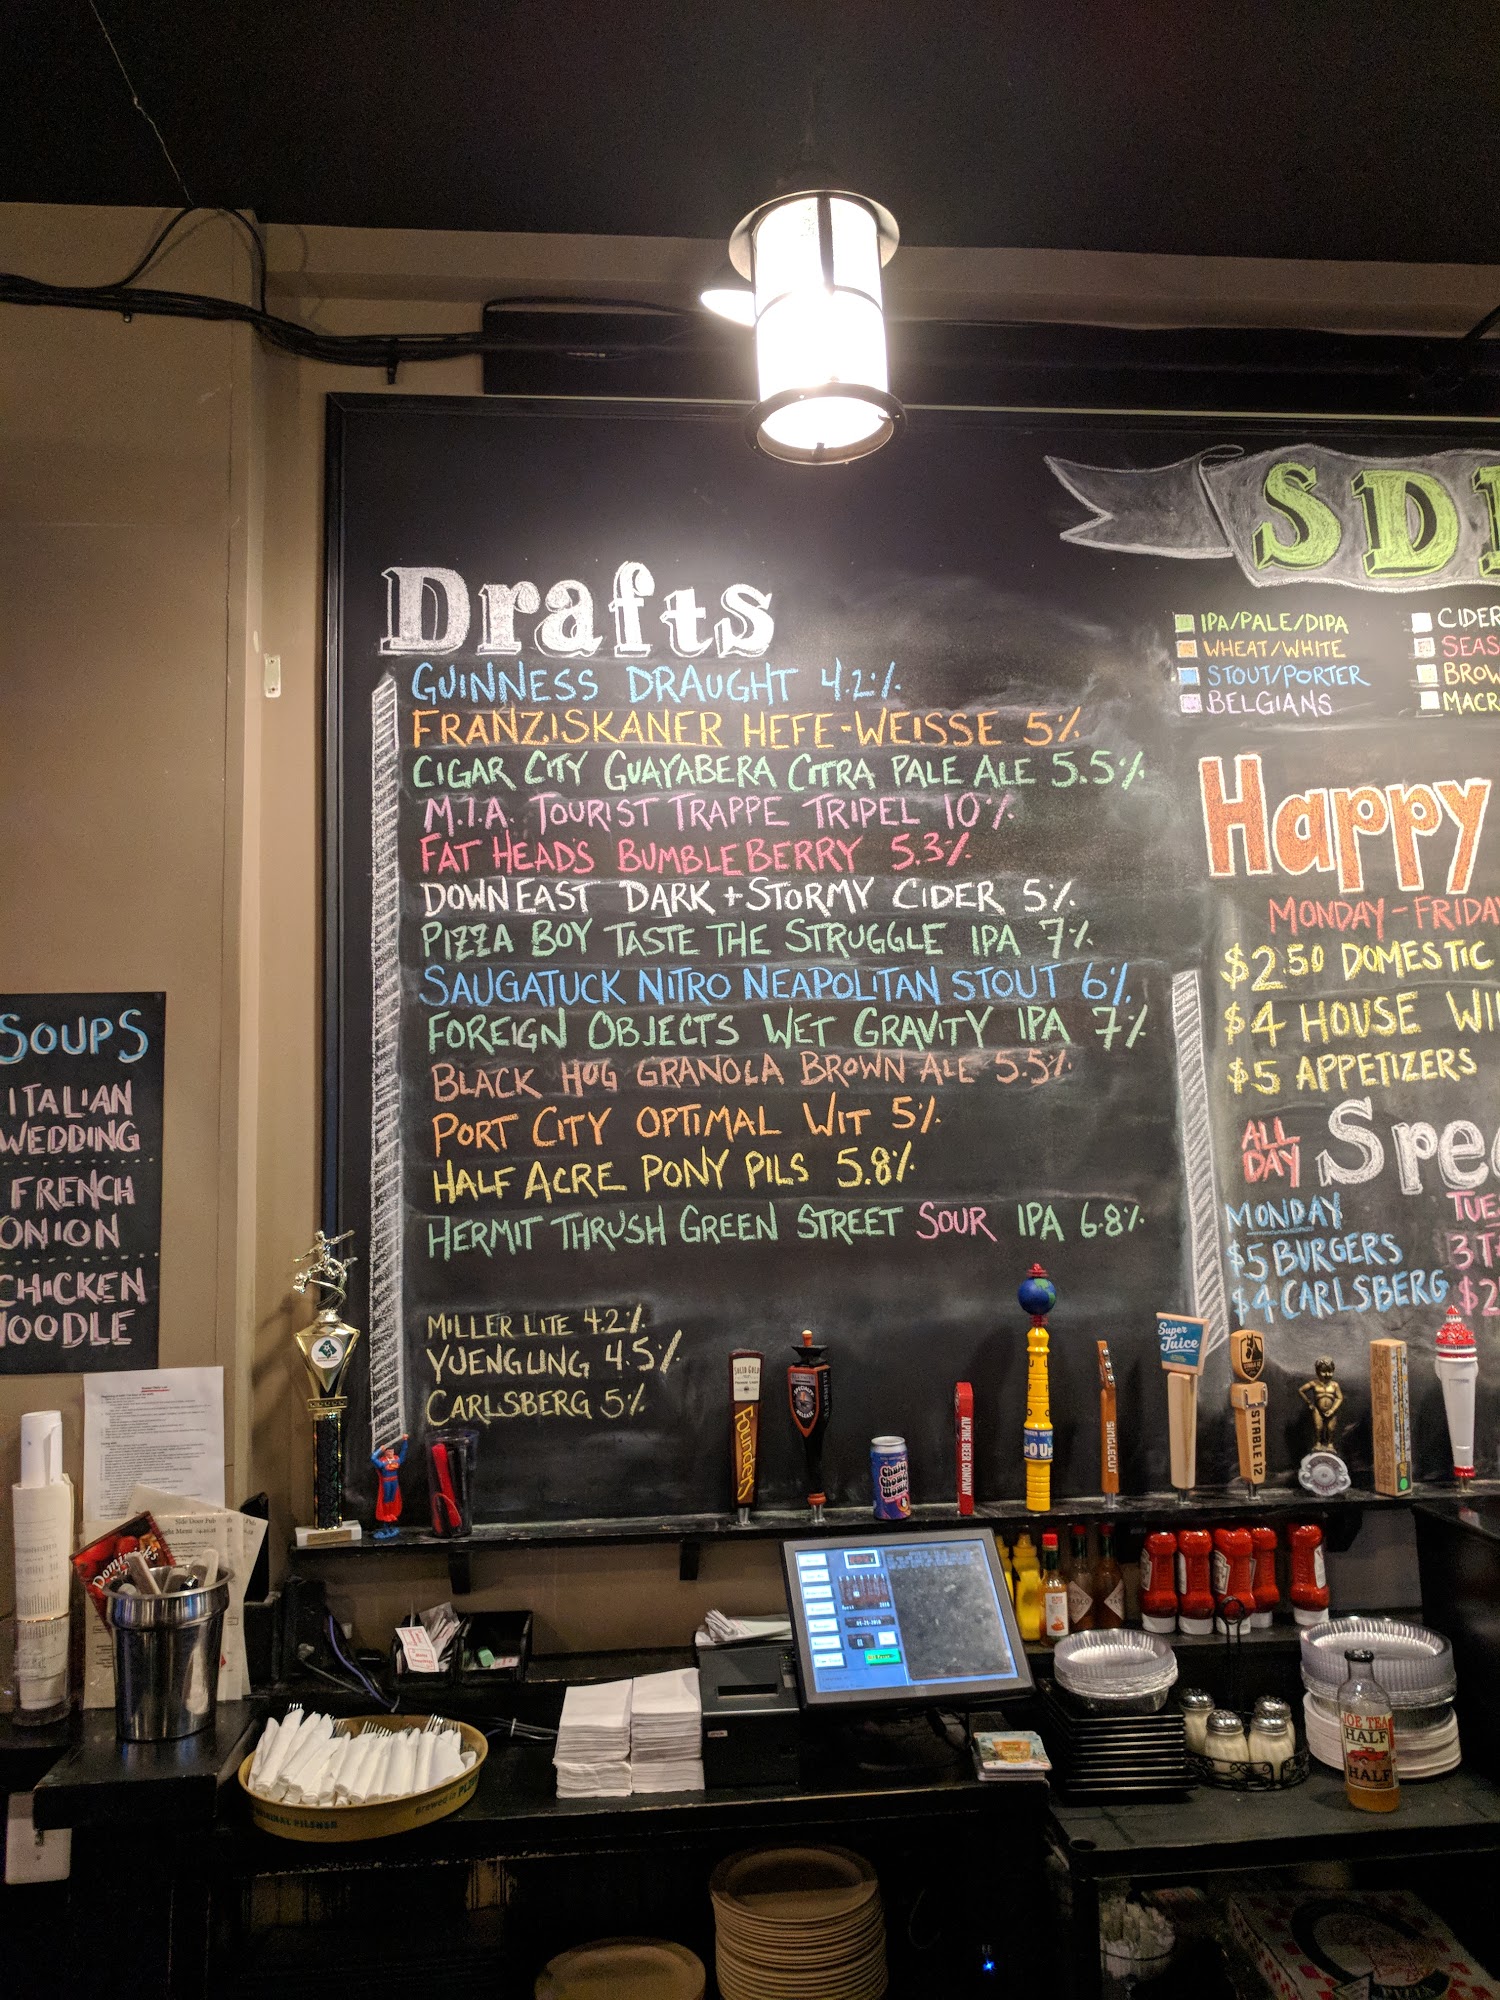 Drafts
GUINNESS DRAUGHT 4.2%
FRANZISKANER HEFE-WEISSE 5%
CIGAR CITY GUAYABERA CITRA PALE ALE 5.5%
M.I.A. TOURIST TRAPPE TRIPEL 10%
FAT HEADS BUMBLEBERRY 5.3%
DOWNEAST DARK + STORMY CIDER 5%
PIZZA BOY TASTE THE STRUGGLE IPA 7%
SAUGATUCK NITRO NEAPOLITAN STOUT 6%
FOREIGN OBJECTS WET GRAVITY IPA 7%
BLACK HOG GRANOLA BROWN ALE 5.5%
PORT CITY OPTIMAL WIT 5%
HALF ACRE PONY PILS 5.8%
HERMIT THRUSH GREEN STREET SOUR IPA 6.8%
MILLER LITE 4.2%
YUENGLING 4.5%
CARLSBERG 5%
SD
IPA/PALE/DIPA
WHEAT/WHITE
STOUT/PORTER
BELGIANS
CIDER
SEAS
BROW
MACR
Happy
MONDAY-FRIDAY
$2.50 DOMESTIC
$4 HOUSE WI
$5 APPETIZERS
ALL DAY
Spec
MONDAY
$5 BURGERS
$4 CARLSBERG
TUE
3 T
$2
SOUPS
ITALIAN
WEDDING
FRENCH
ONION
CHICKEN
NOODLE
SOLID GOLD
Founders
SPECIALTY
RELEASE
ALPINE BEER COMPANY
SINGLECUT
Super
Juice
STABLE 12
Dominick's
JOE TEA
HALF
HALF